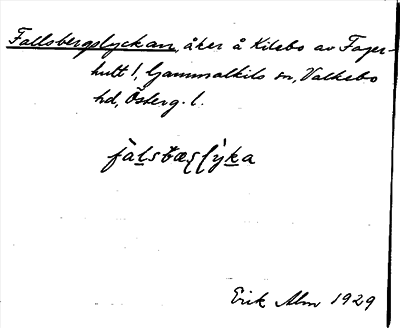 Fallsbergslyckan, åker å Kilebo av Fager-
hult 1, Gammalkils sn, Valkebo
hd, Österg. l.
Erik Alm 1929